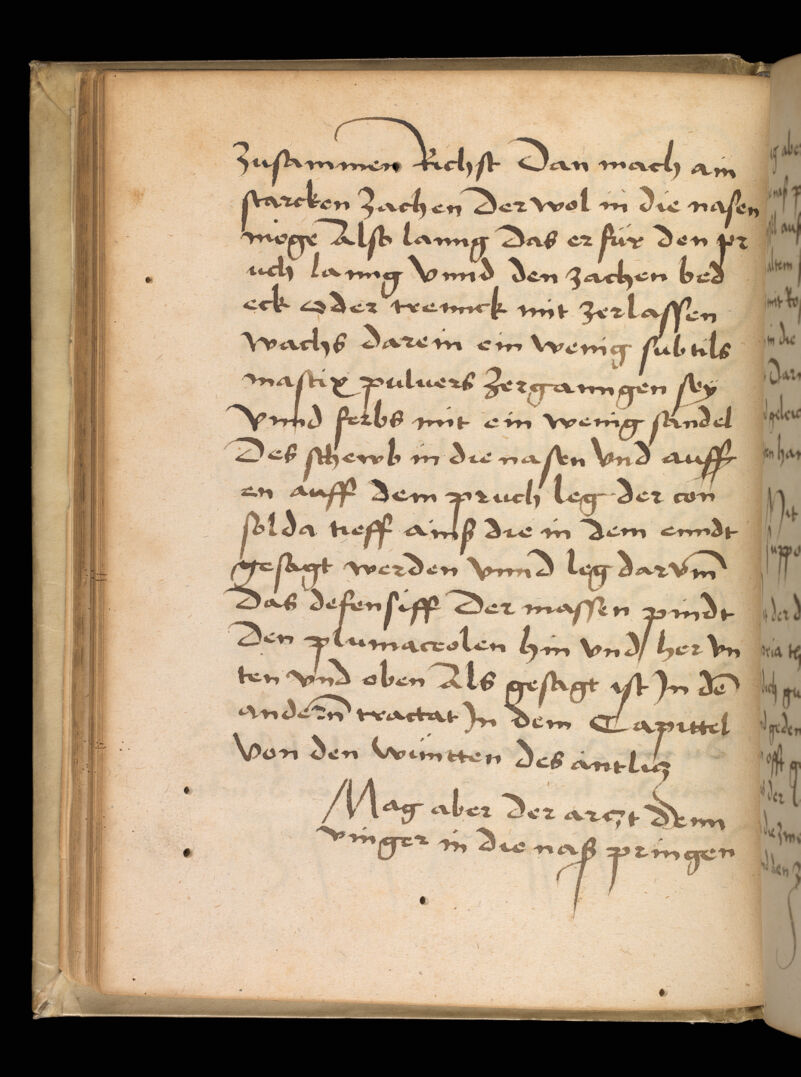 zusammen Richst Dan mach ain
starcken zachen Der wol in die nasen
möge Also lanng Das er für den pr
uch lanng Vnnd den zachen bed
eck Oder trennck mit zerlassen
wachs darein ein wenig subtils
mastix puluers zerganngen sey
Vnnd ferbs mit ein wenig sandel
Des schewb in die nasen Vnd auff
en auff dem pruch leg der con
solda tieff ainß die in dem enndt
gesagt werden vnnd leg darvm̄
Das defensiff Der massen pindt
Den plumaceolen hin vnd her vn
ten vnd oben Als gesagt ist In dē
andern̄ tractat In dem Capittel
Von den wüntten des antlicz
Mag aber der arczt denn
vinger in die naß pringen